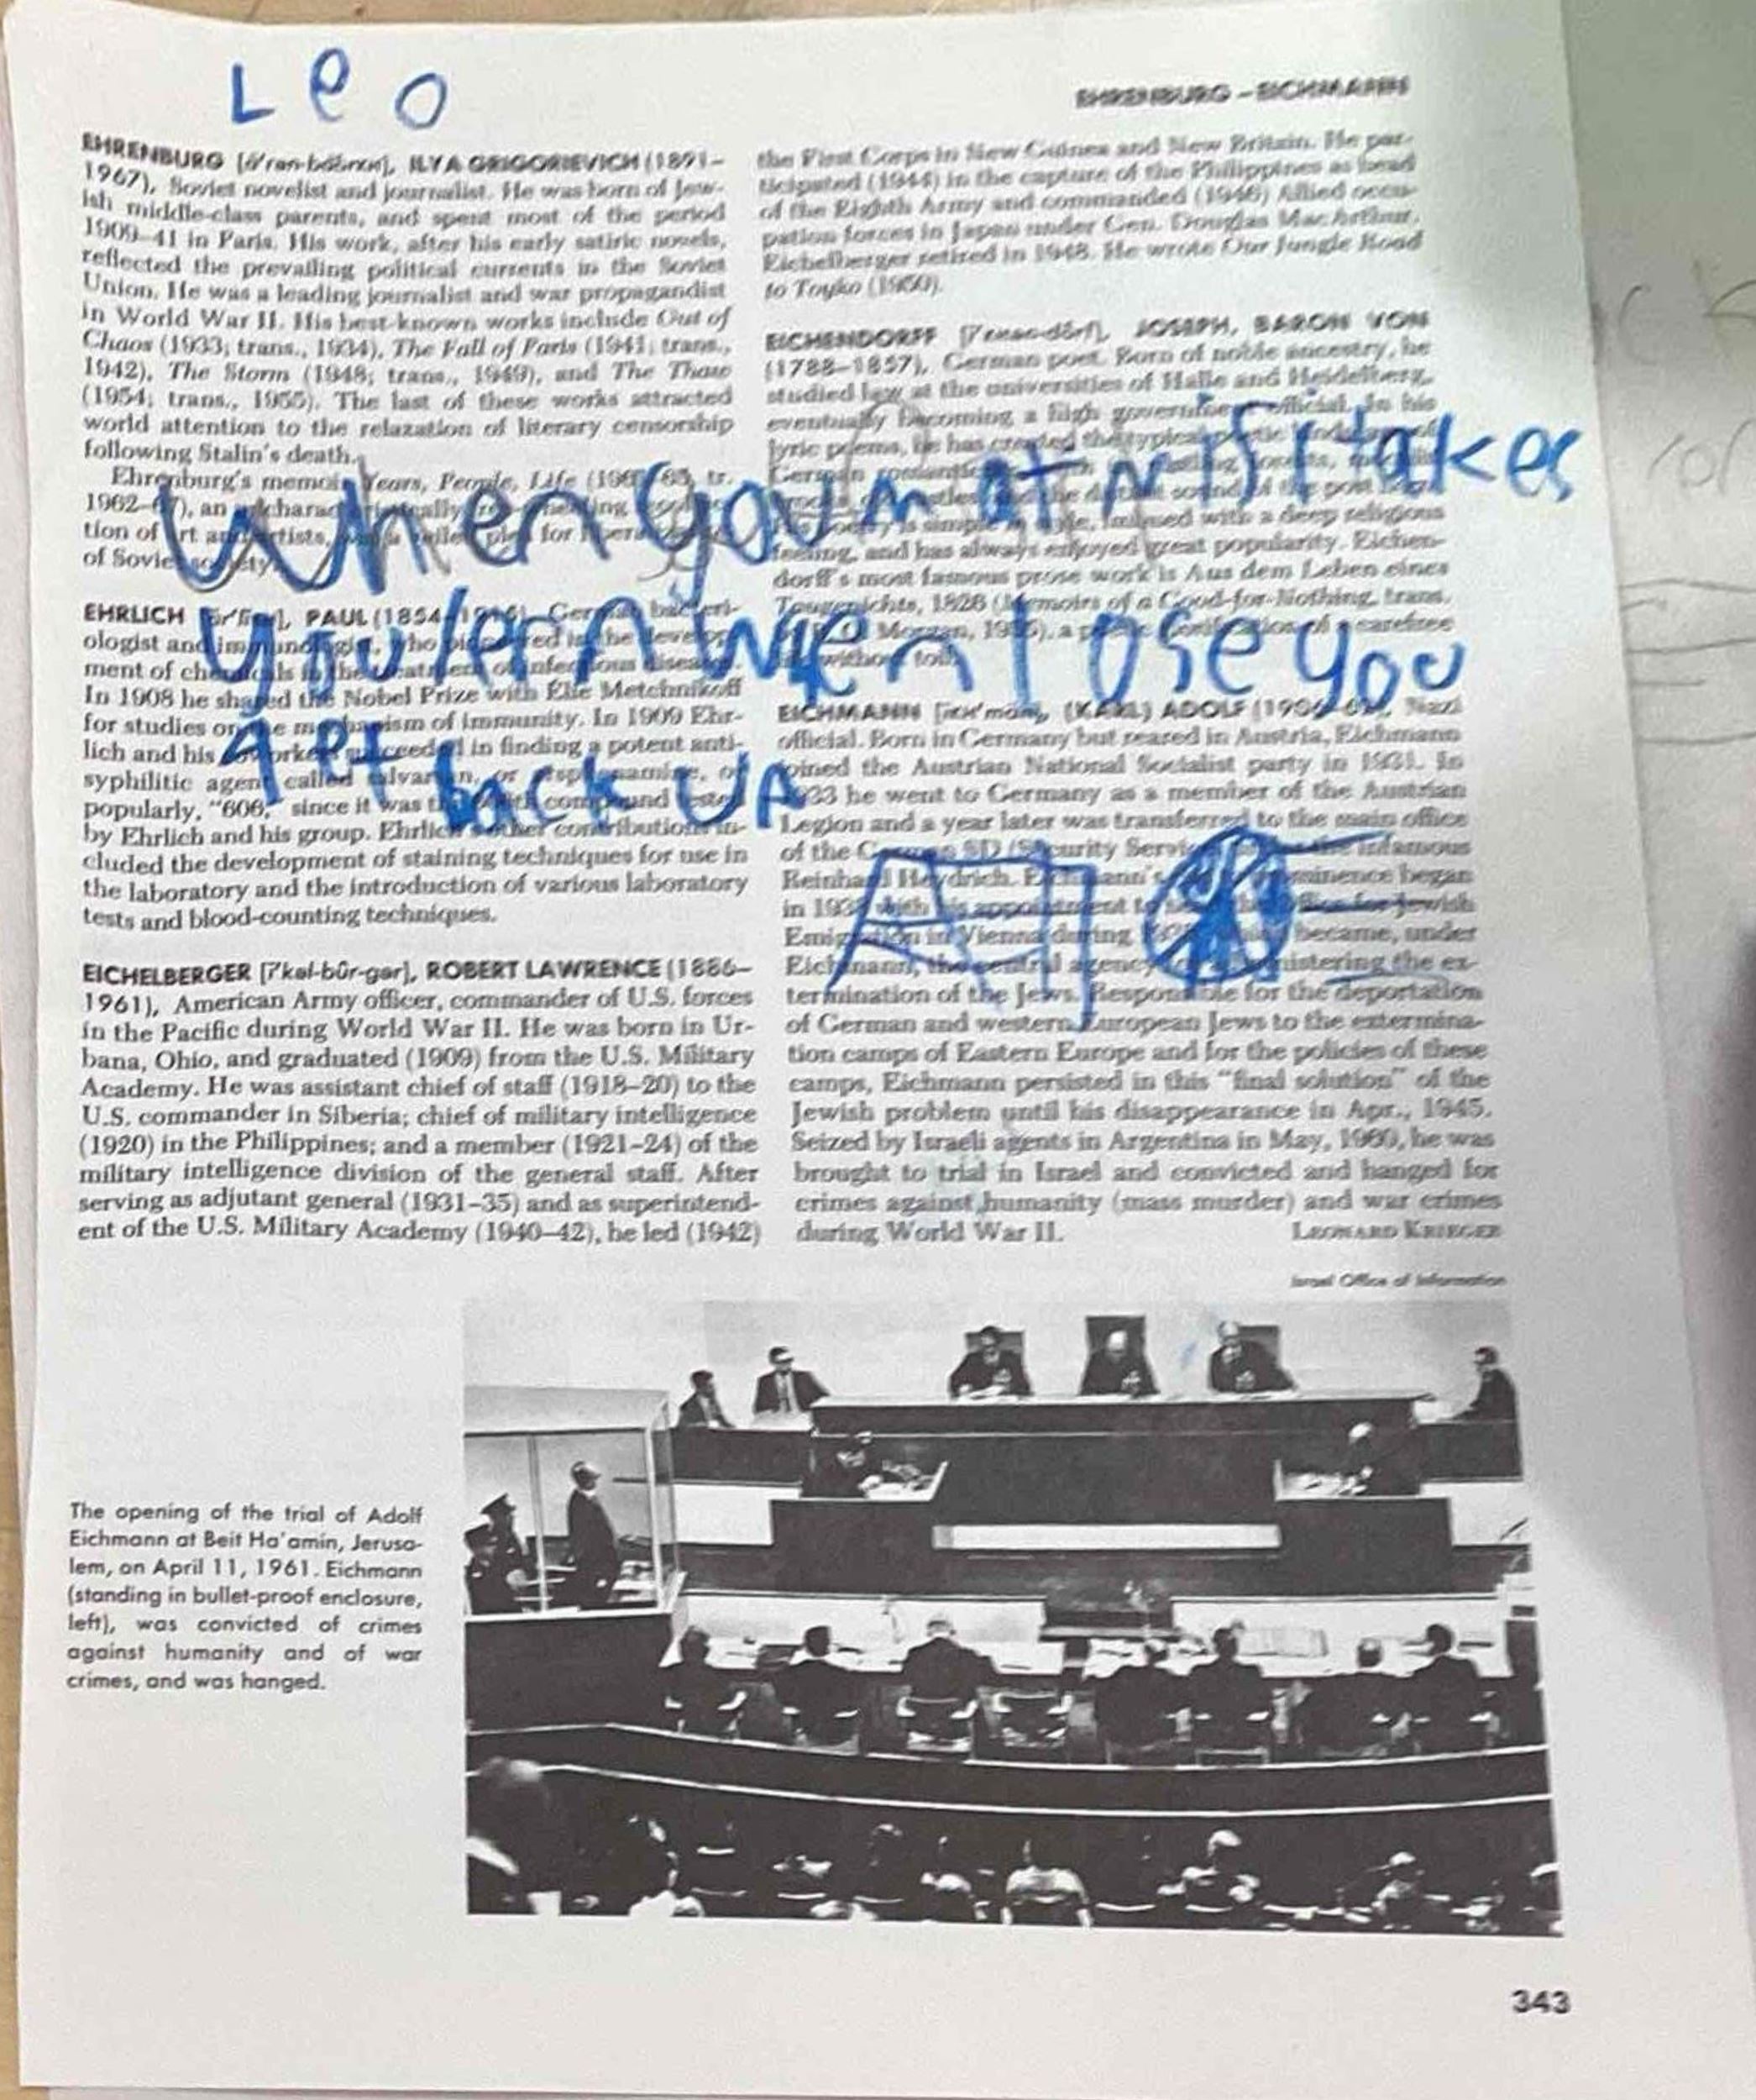 Leo
EHRENBURG – EICHMANN
EHRENBURG ILYA GRIGORIEVICH (1891–
1967), Soviet novelist and journalist. He was born of Jew-
ish middle-class parents, and spent most of the period
1909–41 in Paris. His work, after his early satiric novels,
reflected the prevailing political currents in the Soviet
Union. He was a leading journalist and war propagandist
in World War II. His best-known works include Out of
Chaos (1933; trans., 1934), The Fall of Paris (1941; trans.,
1942), The Storm (1948; trans., 1949), and The Thaw
(1954; trans., 1955). The last of these works attracted
world attention to the relaxation of literary censorship
following Stalin's death.
Ehrenburg's memoir Years, People, Life tr.
1962– an
tion of art and artists, for
of Soviet society.
EHRLICH PAUL (1854 German bacteri-
ologist and immunologist, who pioneered in the develop-
ment of chemicals in the treatment of infectious diseases.
In 1908 he shared the Nobel Prize with Élie Metchnikoff
for studies on the mechanism of immunity. In 1909 Ehr-
lich and his coworkers succeeded in finding a potent anti-
syphilitic agent called salvarsan, or arsphenamine, or
popularly, "606," since it was the compound tested
by Ehrlich and his group. Ehrlich's other contributions in-
cluded the development of staining techniques for use in
the laboratory and the introduction of various laboratory
tests and blood-counting techniques.
EICHELBERGER [ī'kəl-bûr-gər], ROBERT LAWRENCE (1886–
1961), American Army officer, commander of U.S. forces
in the Pacific during World War II. He was born in Ur-
bana, Ohio, and graduated (1909) from the U.S. Military
Academy. He was assistant chief of staff (1918–20) to the
U.S. commander in Siberia; chief of military intelligence
(1920) in the Philippines; and a member (1921–24) of the
military intelligence division of the general staff. After
serving as adjutant general (1931–35) and as superintend-
ent of the U.S. Military Academy (1940–42), he led (1942)
the First Corps in New Guinea and New Britain. He par-
ticipated (1944) in the capture of the Philippines as head
of the Eighth Army and commanded (1946) Allied occu-
pation forces in Japan under Gen. Douglas MacArthur.
Eichelberger retired in 1948. He wrote Our Jungle Road
to Toyko (1950).
EICHENDORFF JOSEPH, BARON VON
(1788–1857), German poet. Born of noble ancestry, he
studied law at the universities of Halle and Heidelberg,
eventually becoming a high government official. In his
lyric poems, he has created the typical
German
the distant sound of the post
His poetry is simple in style, imbued with a deep religious
feeling, and has always enjoyed great popularity. Eichen-
dorff's most famous prose work is Aus dem Leben eines
Taugenichts, 1826 (Memoirs of a Good-for-Nothing, trans.
a of a carefree
without toil.
EICHMANN (KARL) ADOLF (1906 Nazi
official. Born in Germany but reared in Austria, Eichmann
joined the Austrian National Socialist party in 1931. In
1933 he went to Germany as a member of the Austrian
Legion and a year later was transferred to the main office
of the German SD (Security Service) the infamous
Reinhard Heydrich. Eichmann's prominence began
in 1938 with his appointment to the Office for Jewish
Emigration in Vienna during became, under
Eichmann, the central agency administering the ex-
termination of the Jews. Responsible for the deportation
of German and western European Jews to the extermina-
tion camps of Eastern Europe and for the policies of these
camps, Eichmann persisted in this "final solution" of the
Jewish problem until his disappearance in Apr., 1945.
Seized by Israeli agents in Argentina in May, 1960, he was
brought to trial in Israel and convicted and hanged for
crimes against humanity (mass murder) and war crimes
during World War II.
LEONARD KRIEGER
When you mistakes
you when lose you
back UP
Israel Office of Information
The opening of the trial of Adolf
Eichmann at Beit Ha'amin, Jerusa-
lem, on April 11, 1961. Eichmann
(standing in bullet-proof enclosure,
left), was convicted of crimes
against humanity and of war
crimes, and was hanged.
343